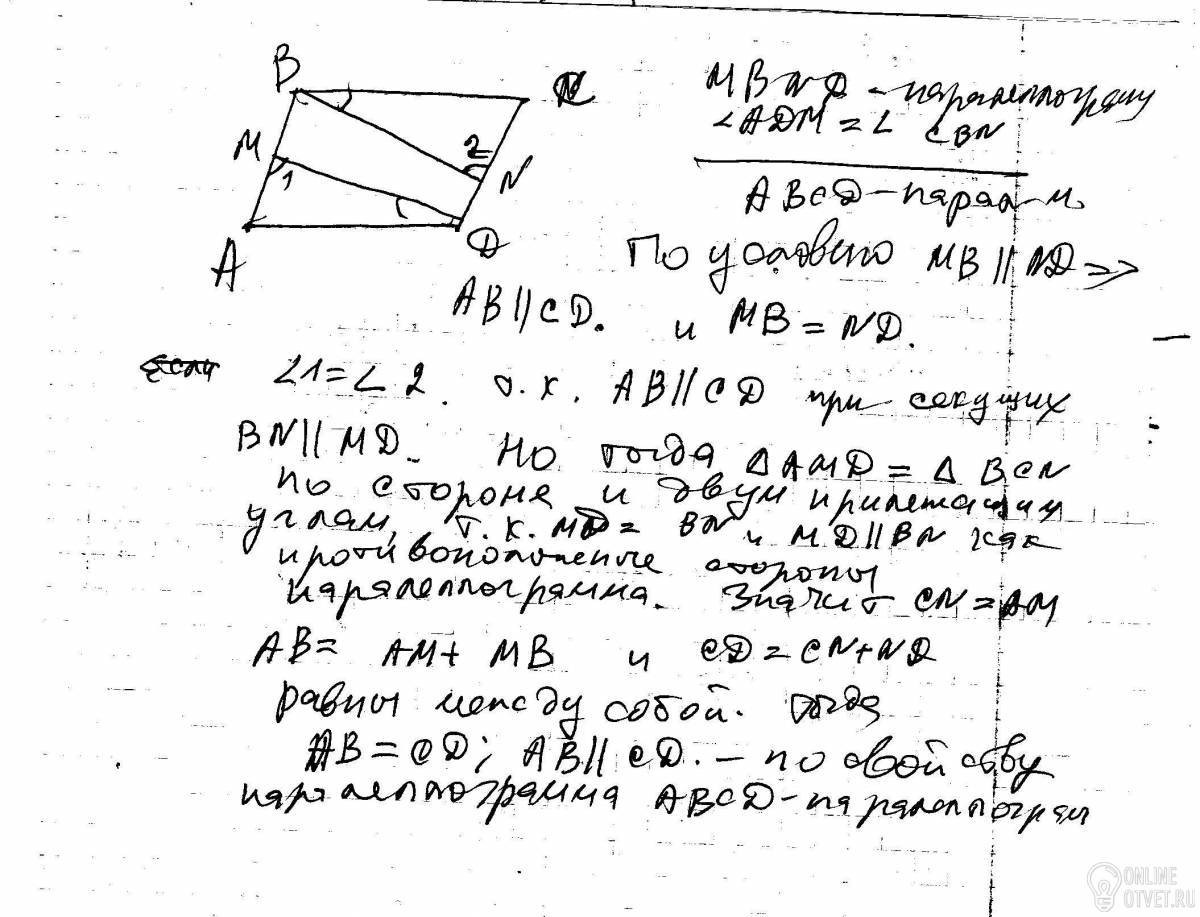 B
C
M
1
2
N
A
D
MBND - параллелограмм
∠ADM = ∠ CBN
ABCD - парал-м
По условию MB || ND =>
AB || CD. и MB = ND.
∠1 = ∠ 2. т.к. AB || CD при секущих
BN || MD. Но тогда △ AMD = △ BCN
по стороне и двум прилежащим
углам, т.к. MD = BN и MD || BN как
противоположные стороны
параллелограмма. Значит CN = AM
AB = AM + MB и CD = CN + ND
равны между собой. тогда
AB = CD; AB || CD. - по свойству
параллелограмма ABCD - параллелограм
ONLINE
OTVET.RU